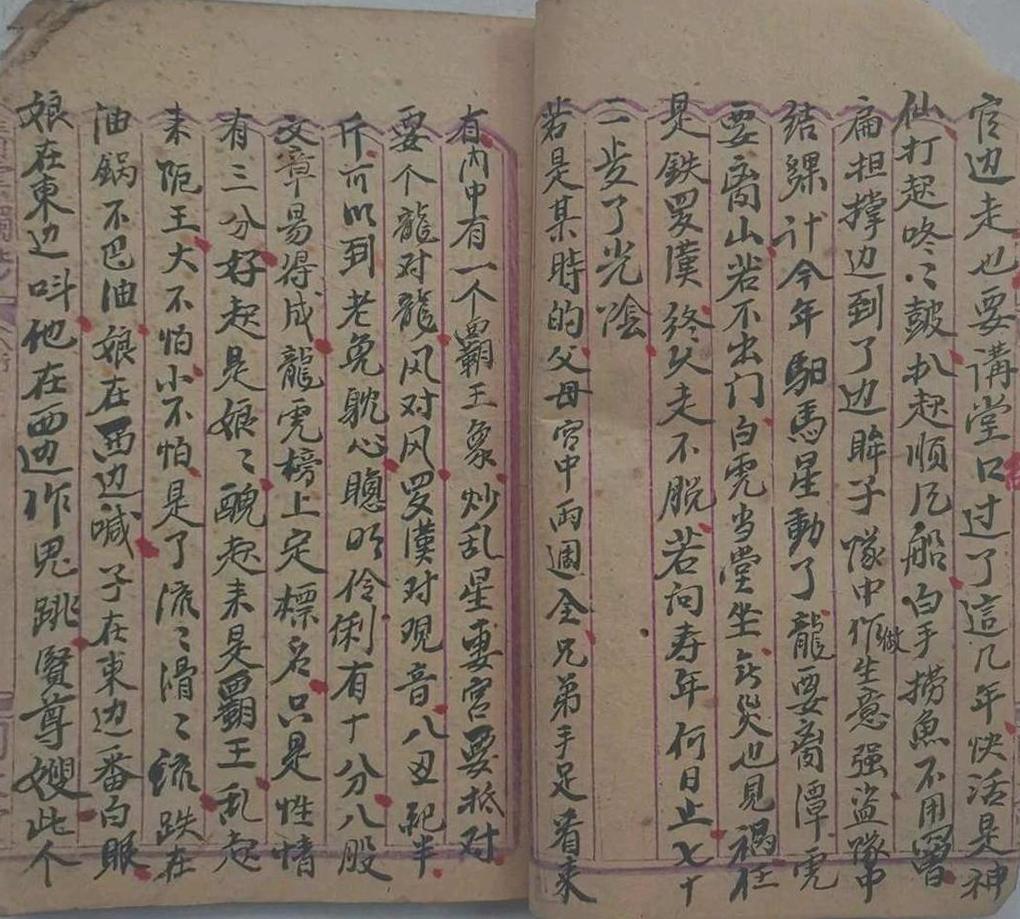 官边走也要講堂口过了這几年快活是神
仙打起咚〻鼓扒起順風船白手捞魚不用罾
扁担撑边到了边眸子隊中作做生意强盗隊中
结縲计今年馹馬星動了龍要离潭虎
要离山若不出门白虎当堂坐災也見禍在
是鉄罗漢终久走不脱若问寿年何日止七十
二岁了光陰
若是某時的父母宫中両週全兄弟手足看来
有内中有一个覇王象炒乱星妻宫要抵对
要个龍对龍风对风罗漢对观音八丑配半
斤所以到老免躭心聰明伶俐有十分八股
文章易得成龍虎榜上定標名只是性情
有三分好起是娘〻醜起来是覇王乱起
来阨王大不怕小不怕是了流〻滑〻跌在
油锅不巴油娘在西边喊子在東边番白眼
娘在東边呌他在西边作鬼跳賢尊嫂此个